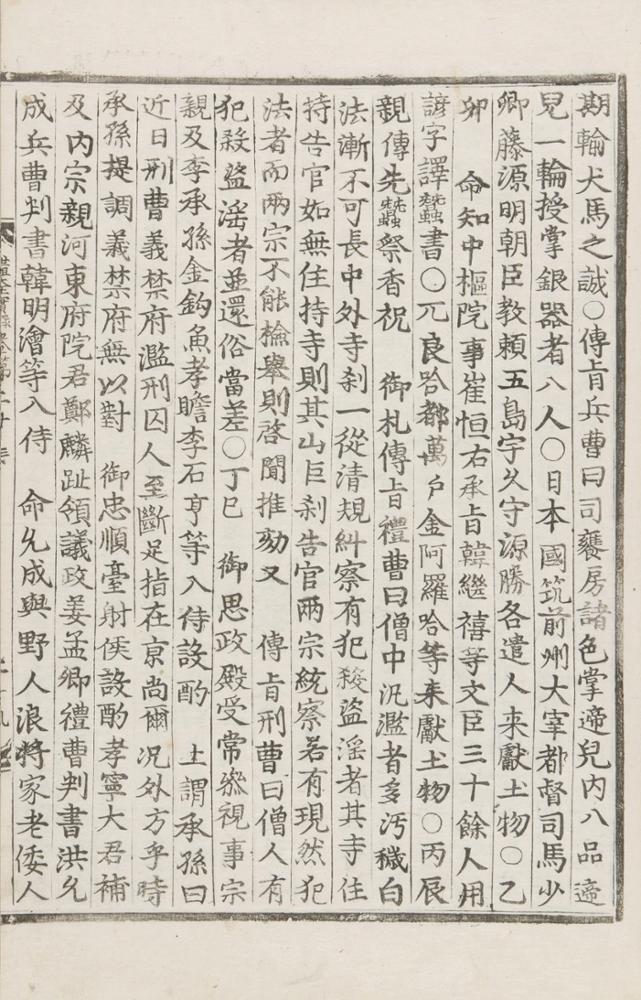 期輸犬馬之誠○傳旨兵曹曰司饔房諸色掌遆兒內八品遆
兒一輪授掌銀器者八人○日本國筑前州大宰都督司馬少
卿藤源朝臣教賴五島宇久守源勝各遣人来獻土物○乙
卯 命知中樞院事崔恒右承旨韓繼禧等文臣三十餘人用
諺字譯蠶書○兀良哈都萬戶金阿羅哈等来獻土物○丙辰
親傳先蠶祭香祝 御札傳旨禮曹曰僧中汎濫者多汚穢白
法漸不可長中外寺刹一從清規糾察有犯殺盗滛者其寺住
持告官如無住持寺則其山巨刹告官兩宗統察若有現然犯
法者而兩宗不能檢舉則啓聞推劾又 傳旨刑曹曰僧人有
犯殺盗滛者並還俗當差○丁巳 御思政殿受常叅視事宗
親及李承孫金鉤魚孝瞻李石亨等入侍設酌 上謂承孫曰
近日刑曹義禁府濫刑囚人至斷足指在京尚爾况外方乎時
承孫提調義禁府無以對 御忠順臺射侯設酌孝寧大君補
及內宗親河東府院君鄭麟趾領議政姜孟卿禮曹判書洪允
成兵曹判書韓明澮等入侍 命允成與野人浪將家老倭人